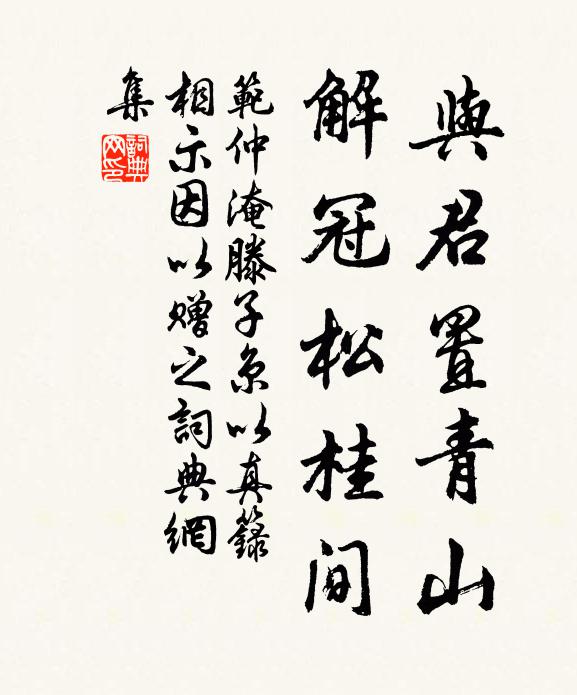 與君置青山
解冠松桂間
範仲淹滕子京以真籙
相示因以贈之詞典網
集
詞典
网印